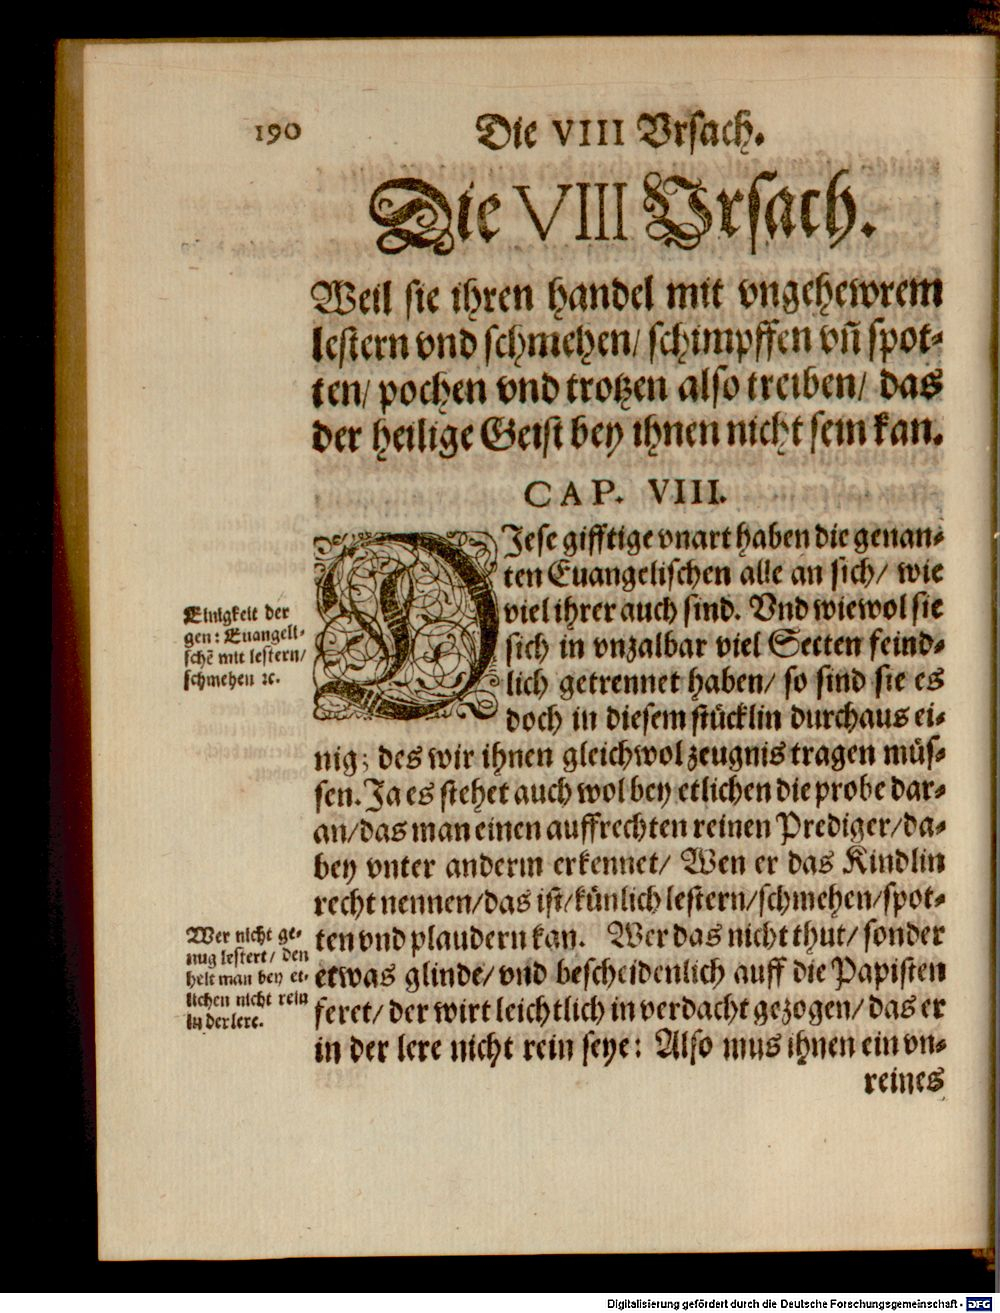 190
Die VIII Vrsach.
Die VIII Vrsach.
Weil sie ihren handel mit vngehewrem
lestern vnd schmehen/ schimpffen vñ spot-
ten/ pochen vnd trotzen also treiben/ das
der heilige Geist bey ihnen nicht sein kan.
CAP. VIII.
DJese gifftige vnart haben die genan-
ten Euangelischen alle an sich/ wie
viel ihrer auch sind. Vnd wiewol sie
sich in vnzalbar viel Secten feind-
lich getrennet haben/ so sind sie es
doch in diesem stücklin durchaus ei-
nig; des wir ihnen gleichwol zeugnis tragen müs-
sen. Ja es stehet auch wol bey etlichen die probe dar-
an/ das man einen auffrechten reinen Prediger/ da-
bey vnter anderm erkennet/ Wen er das Kindlin
recht nennen/ das ist/ künlich lestern/ schmehen/ spot-
ten vnd plaudern kan. Wer das nicht thut/ sonder
etwas glinde/ vnd bescheidenlich auff die Papisten
feret/ der wirt leichtlich in verdacht gezogen/ das er
in der lere nicht rein seye: Also mus ihnen ein vn-
reines
Einigkeit der
gen: Euangeli-
schē mit lestern/
schmehen ꝛc.
Wer nicht ge-
nug lestert/ den
helt man bey et-
lichen nicht rein
in der lere.
Digitalisierung gefördert durch die Deutsche Forschungsgemeinschaft - DFG